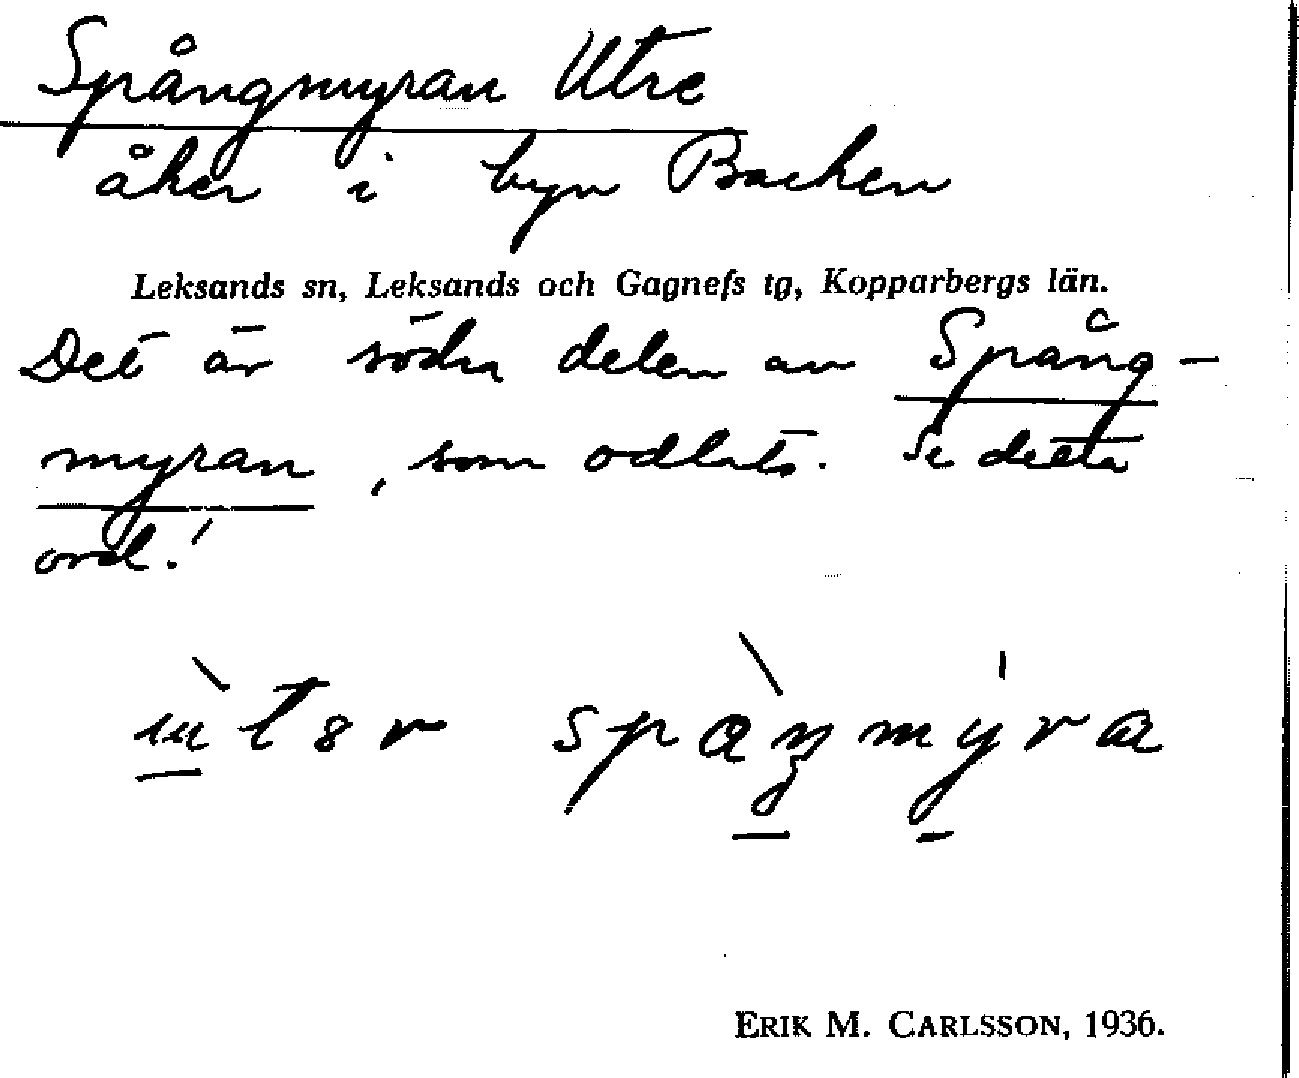 Spångmyran Utre
åker i byn Backen
Leksands sn, Leksands och Gagnefs tg, Kopparbergs län.
Det är södra delen av Spång-
myran, som odlats. Se detta
ord!
ERIK M. CARLSSON, 1936.